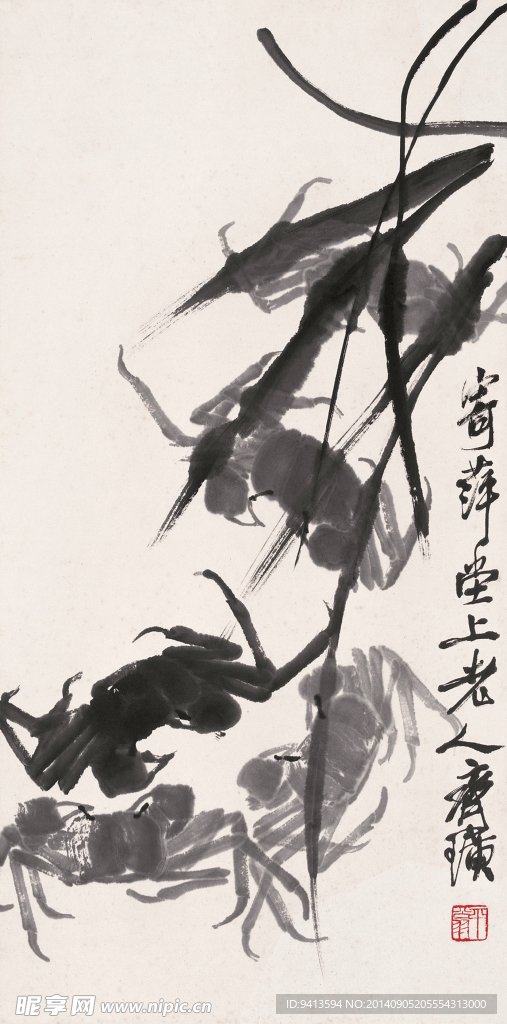 寄萍堂上老人齊璜
昵享网 www.nipic.cn
ID:9413594 NO:20140905205554313000